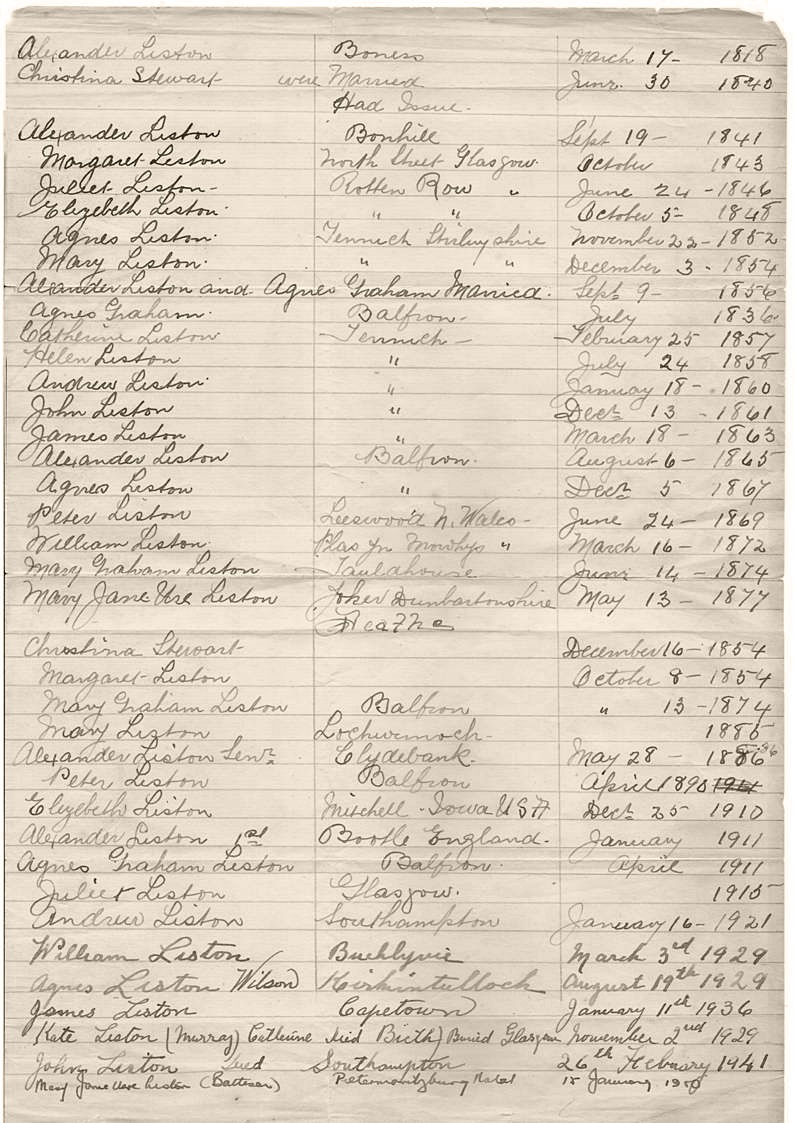 Alexander Liston Boness March 17 - 1818
Christina Stewart were Married June 30 1840
Had Issue.
Alexander Liston Bonhill Sept 19 - 1841
Margaret Liston North Street Glasgow. October 1843
Juliet Liston - Rotten Row " June 24 - 1846
Elizebeth Liston. " " October 5 - 1848
Agnes Liston. Fennich Stirlingshire November 22 - 1852
Mary Liston. " " December 3 - 1854
Alexander Liston and Agnes Graham Married. Sept 9 - 1856
Agnes Graham. Balfron - July 1836.
Catherine Liston Fennich - February 25 1857
Helen Liston " July 24 1858
Andrew Liston. " January 18 - 1860
John Liston " Dect 13 - 1861
James Liston " March 18 - 1863
Alexander Liston Balfron. August 6 - 1865
Agnes Liston " Dect 5 1867
Peter Liston Leeswood N. Wales - June 24 - 1869
William Liston. Plas yn " March 16 - 1872
Mary Graham Liston Fauldhouse June 14 - 1874
Mary Jane Ure Liston Joker Dunbartonshire May 13 - 1877
Heaths
Christina Stewart December 16 - 1854
Margaret Liston October 8 - 1854
Mary Graham Liston Balfron " 13 - 1874
Mary Liston Lochwinnoch - 1885
Alexander Liston Senr Clydebank. May 28 - 1886
Peter Liston Balfron April 1890
Elizebeth Liston Mitchell - Iowa USA Dect 25 1910
Alexander Liston 1st Bootle England. January 1911
Agnes Graham Liston Balfron. April 1911
Juliet Liston Glasgow. 1915
Andrew Liston Southampton January 16 - 1921
William Liston Buchlyvie March 3rd 1929
Agnes Liston Wilson Kirkintulloch August 19th 1929
James Liston Capetown January 11th 1936
Kate Liston (Murray) Catherine Birth) Buried Glasgow November 2nd 1929
John Liston Died Southampton 26th Febuary 1941
Mary Jane Liston Natal January